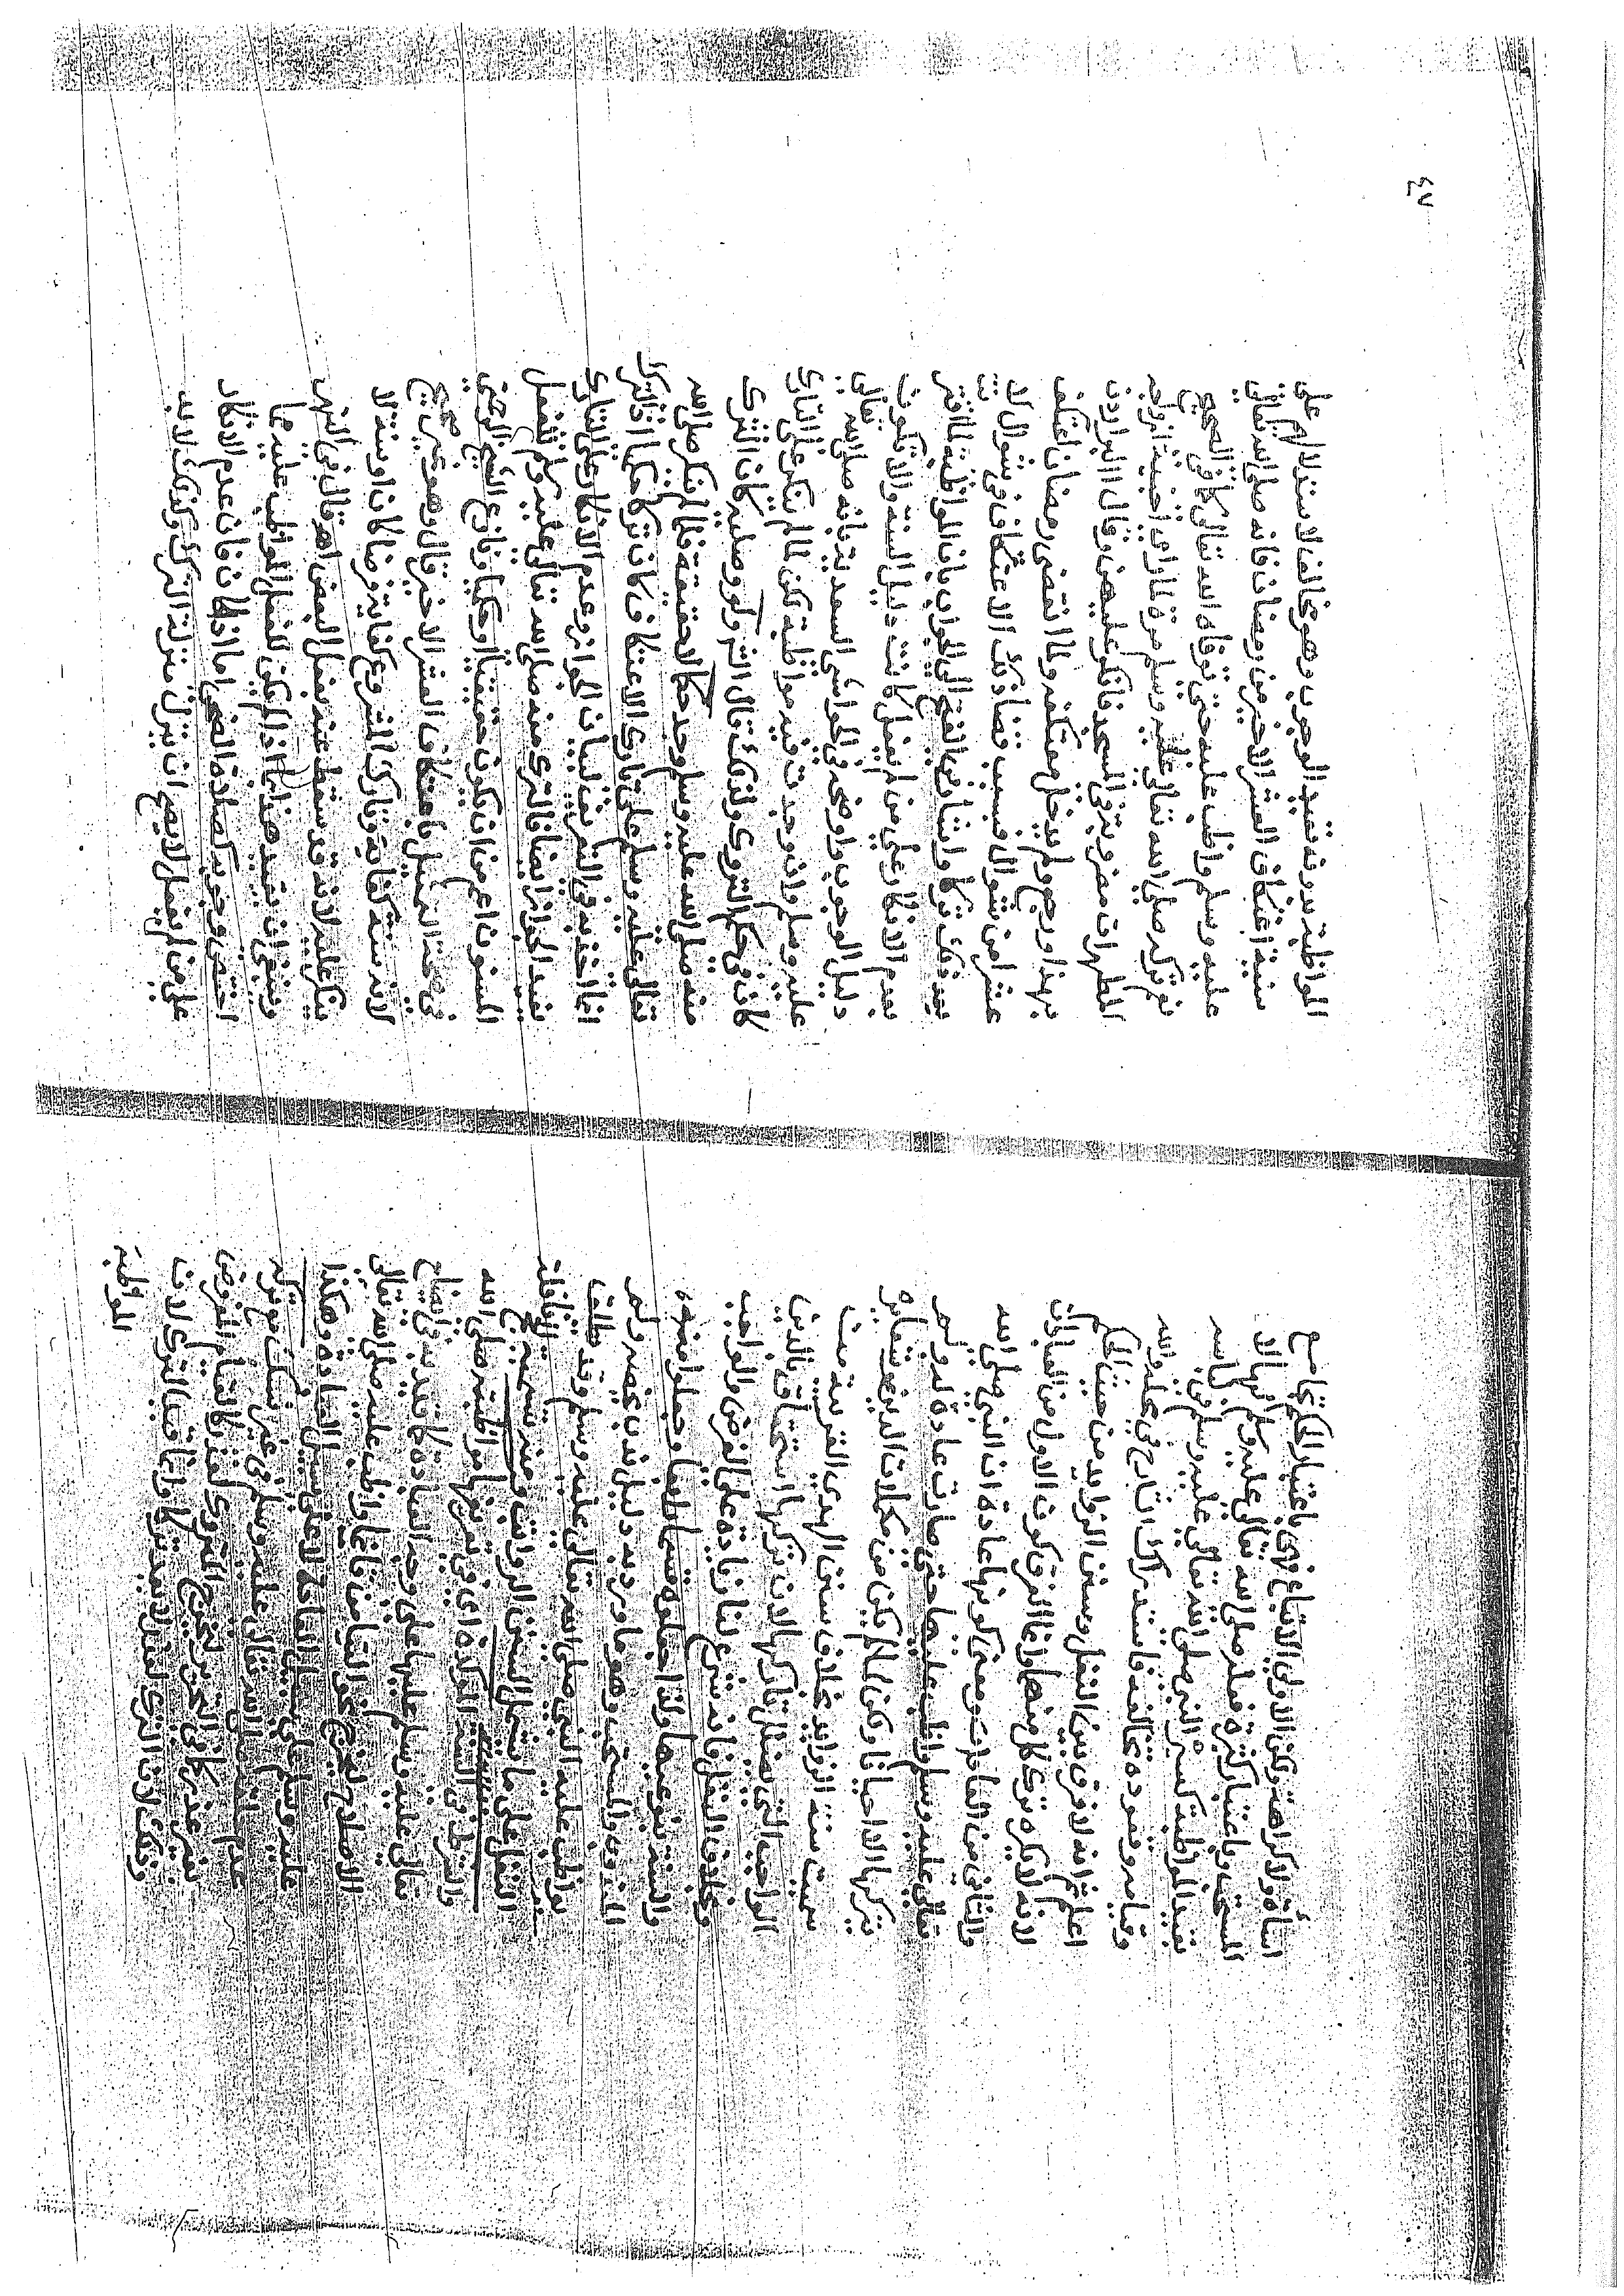 اساءة ولا كراهة وكن الاولى الاتباع فهى باعتبار الحكم تجامع
المستحب وباعتبار كثرة فعله صلى الله تعالى عليه وسلم لها لا
تفيد المواظبة كسير النبى صلى الله تعالى عليه وسلم في لباسه
وقيامه وقعوده تخالفه فاستدراك الشارح في محله والله
اعلم ثم انه لا فرق بين النفل وسنن الزوايد من حيث الحكم
لانه لا يكره ترك كل منهما وانما الفرق كون الاول من العبادات
والثاني من العادات ومعنى كونها عادة ان النبي صلى الله
تعالى عليه وسلم واظب عليها حتى صارت عادة له ولم
يتركها الا احيانا وكن لما لم يكن من مكملات الدين وشعايره
سميت سنة الزوايد بخلاف سنن الهدى القريبة من
الواجب التى يضلل تاركها لان تركها استخفاف بالدين
وبخلاف النفل فانه شرع لنا زيادة على الفرض والواجب
والسنة بنوعيها ولذا جعلوه قسما رابعا وجعلوا منه
المندوب والمستحب وهو ما ورد به دليل ندب يخصه ولم
يواظب عليه النبي صلى الله تعالى عليه وسلم وقد يطلق
النفل على ما يشمل السنن الرواتب ومنه النافلة
والشرط في السنة الموكدة اى في تعريفها مواظبته صلى الله
تعالى عليه وسلم عليها على وجه العبادة كما قيد به في ايضاح
الاصلاح ليخرج نحو التيامن فانما واظب عليه صلى الله تعالى
عليه وسلم على سبيل العادة لا على سبيل العبادة وهكذا
عدم صلى الله تعالى عليه وسلم في غير نسك مع تركه
بغير عذر كما في التحرير ليخرج المتروك لعذر كالقيام المفروض
وذلك لان الترك لعذر لا يعد تركا وانما قيد بالترك لان
المواظبة
٤٧
المواظبة بدونه تفيد الوجوب وهو مخالف لاستدلالهم على
سنية اعتكاف العشر الاخير من رمضان فانه صلى الله تعالى
عليه وسلم واظب عليه حتى توفاه الله تعالى كما في الصحيح
نعم تركه صلى الله تعالى عليه وسلم مرة لما راى اخبية ازواجه
المطهرات مضروبة في المسجد فانكر عليهن وقال البر اردن
بهذا ورجع ولم يدخل معتكفه ولما انقضى رمضان اعتكف
عشرا من شوال فبسبب قضا ذلك الاعتكاف في شوال لا
يعد ذلك تركا واشار في الفتح الى الجواب بان المواظبة لما اقترنت
بعدم الانكار على من لم يفعل كانت دليل السنة والا تكون
دليل الوجوب واوضحه في الحواشى السعدية بانه صلى الله تعالى
عليه وسلم وان وجدت فيه مواظبة لكن لما لم ينكر على التارك
كان في حكم المتروك ولذلك قال الشر ولو وصلية كان الترك
منه صلى الله عليه وسلم وحد حكما لا حقيقة فلما لم ينكر صلى الله
تعالى عليه وسلم على تارك الاعتكاف كان تركا حكما اذ الترك
انما اخذ به في التعريف لبيان الجواز وعدم الانكار على التارك
يفيد الجواز ايضا فالترك منه صلى الله تعالى عليه وسلم للفعل
المسنون اعم من ان يكون حقيقيا او حكميا ونازع الشيخ الرحمتي
في صحة التمثيل باعتكاف العشر الاخير قال وهو غير صحيح
لانه سنة كفاية وتارك المشروع كفاية فرضا كان او سنة لا
ينكر عليه لانه قد سقط عنه بفعل البعض اهـ قال في النهر
وينبغي ان يقيد هذا بما اذا لم يكن الفعل المواظب عليه مما
اختص وجوبه كصلاة الضحى اما اذا كان فان عدم الانكار
على من لم يفعل لا يصح ان ينزل منزلة الترك وكذلك لا بد